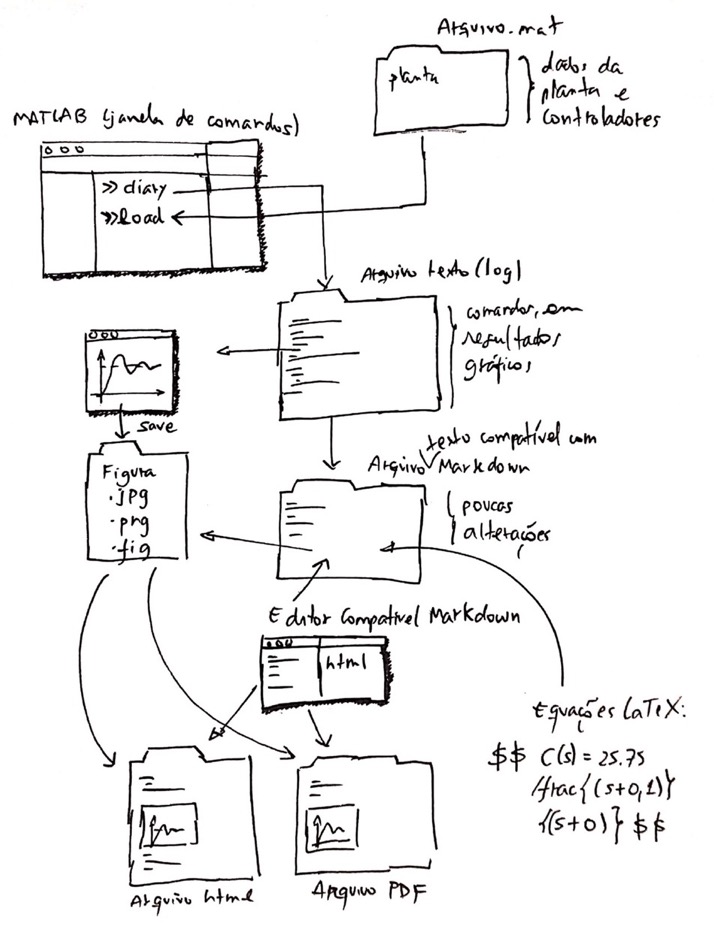 Arquivo.mat
planta
dados da
planta e
controladores
MATLAB (janela de comandos)
>> diary
>> load
Arquivo texto (log)
comandos, em
resultados
gráficos
save
Figura
.jpg
.png
.fig
texto compatível com
Arquivo Markdown
poucas
alterações
Editor Compatível Markdown
html
Equações LaTeX:
$$ C(s) = 25.75
/frac{(s+0,1)}
{(s+0)} $$
Arquivo html
Arquivo PDF